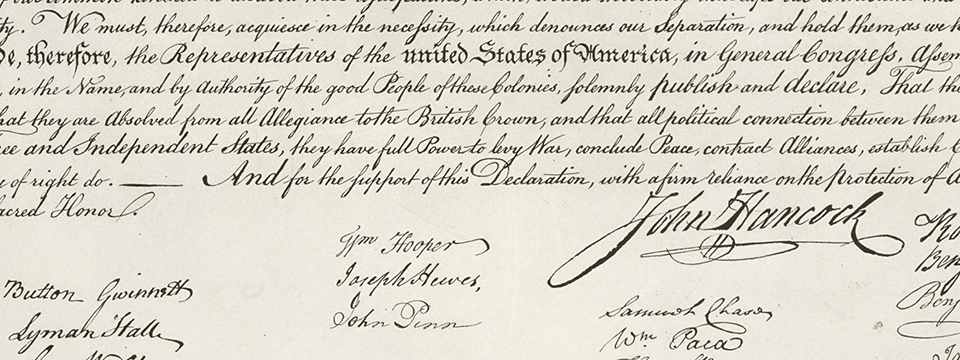 We must, therefore, acquiesce in the necessity, which denounces our Separation, and hold them, as we
therefore, the Representatives of the united States of America, in General Congress, Assem
, in the Name, and by Authority of the good People of these Colonies, solemnly publish and declare, That the
hat they are Absolved from all Allegiance to the British Crown, and that all political connection between them
ee and Independent States, they have full Power to levy War, conclude Peace, contract Alliances, establish
of right do. — And for the support of this Declaration, with a firm reliance on the Protection of
acred Honor.
John Hancock
Wm Hooper
Joseph Hewes,
John Penn
Button Gwinnett
Lyman Hall
Samuel Chase
Wm. Paca
Ben
Benj